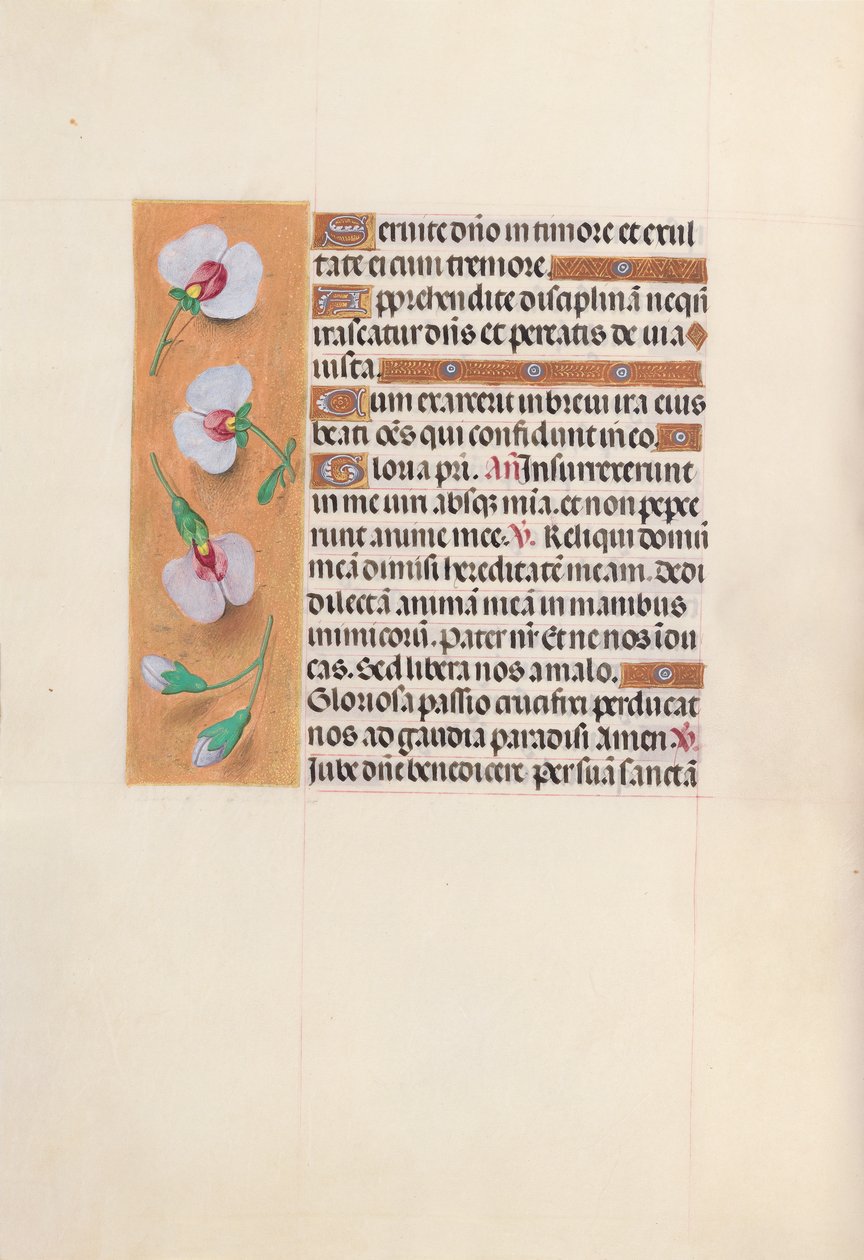 Seruite dño in timore et exul
tate ei cum tremore.
Apprehendite disciplinã nequñ
irascatur dñs et pereatis de uia
iusta.
Cum exarcerit in breui ira eius
beati oẽs qui confidunt in eo.
Gloria pri. Añ Insurrexerunt
in me uiri absq; mĩa. et non pepe
runt anime mee. ℣. Reliqui domũ
meã dimisi hereditatẽ meam. Dedi
dilectã animã meã in manibus
inimicorũ. Pater nr̃ Et ne nos ĩdu
cas. Sed libera nos a malo.
Gloriosa passio crucifixi perducat
nos ad gaudia paradisi Amen. ℣.
Jube dñe benedicere. Per suã sanctã